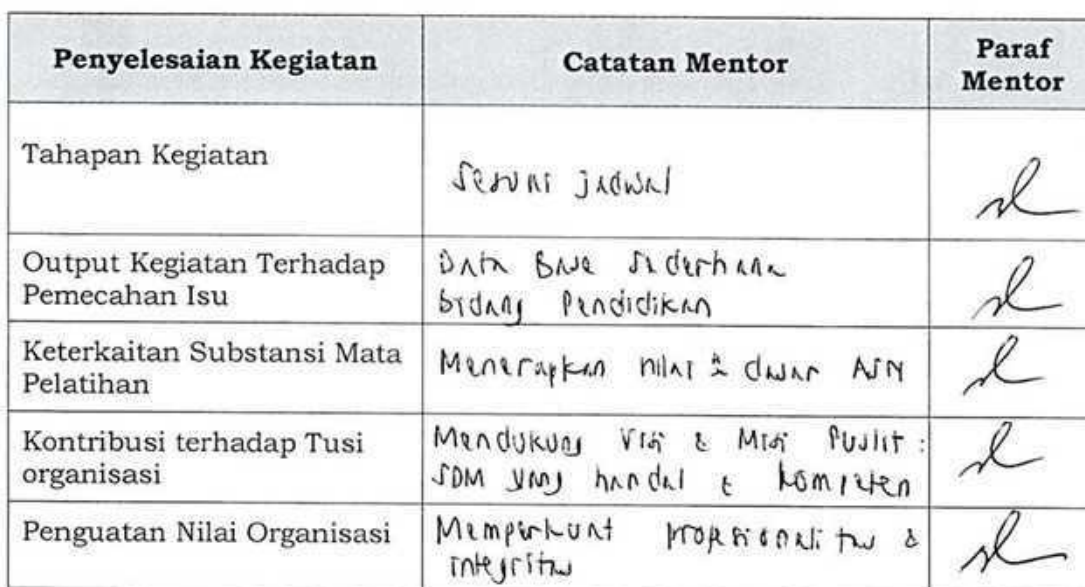 Penyelesaian Kegiatan
Catatan Mentor
Paraf
Mentor
Tahapan Kegiatan
Sesuai jadwal
Output Kegiatan Terhadap
Pemecahan Isu
Data Base Sederhana
bidang Pendidikan
Keterkaitan Substansi Mata
Pelatihan
Menerapkan nilai² dasar ASN
Kontribusi terhadap Tusi
organisasi
Mendukung Visi & Misi Puslit :
SDM yang handal & kompeten
Penguatan Nilai Organisasi
Memperkuat &
integritas